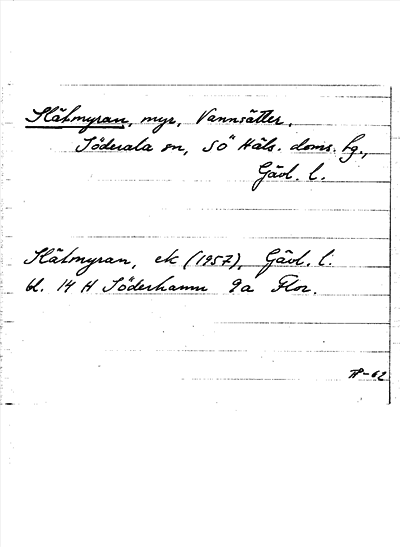 Slåtmyran, myr, Vannsätter,
Söderala sn, SÖ Häls. doms. fg.,
Gävl. l.
Slåtmyran, ek (1957), Gävl. l.
bl. 14 H Söderhamn 9a Flor.
-62